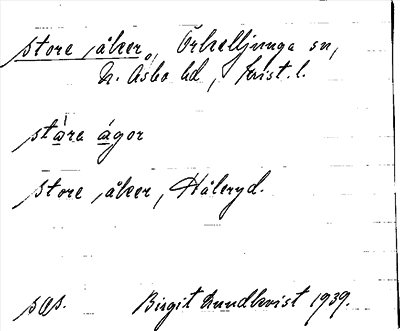 store åker, Örkelljunga sn,
N. Åsbo hd, Krist. l.
stàra ágor
store åker, Håleryd.
sas.
Birgit Lundkvist 1939.